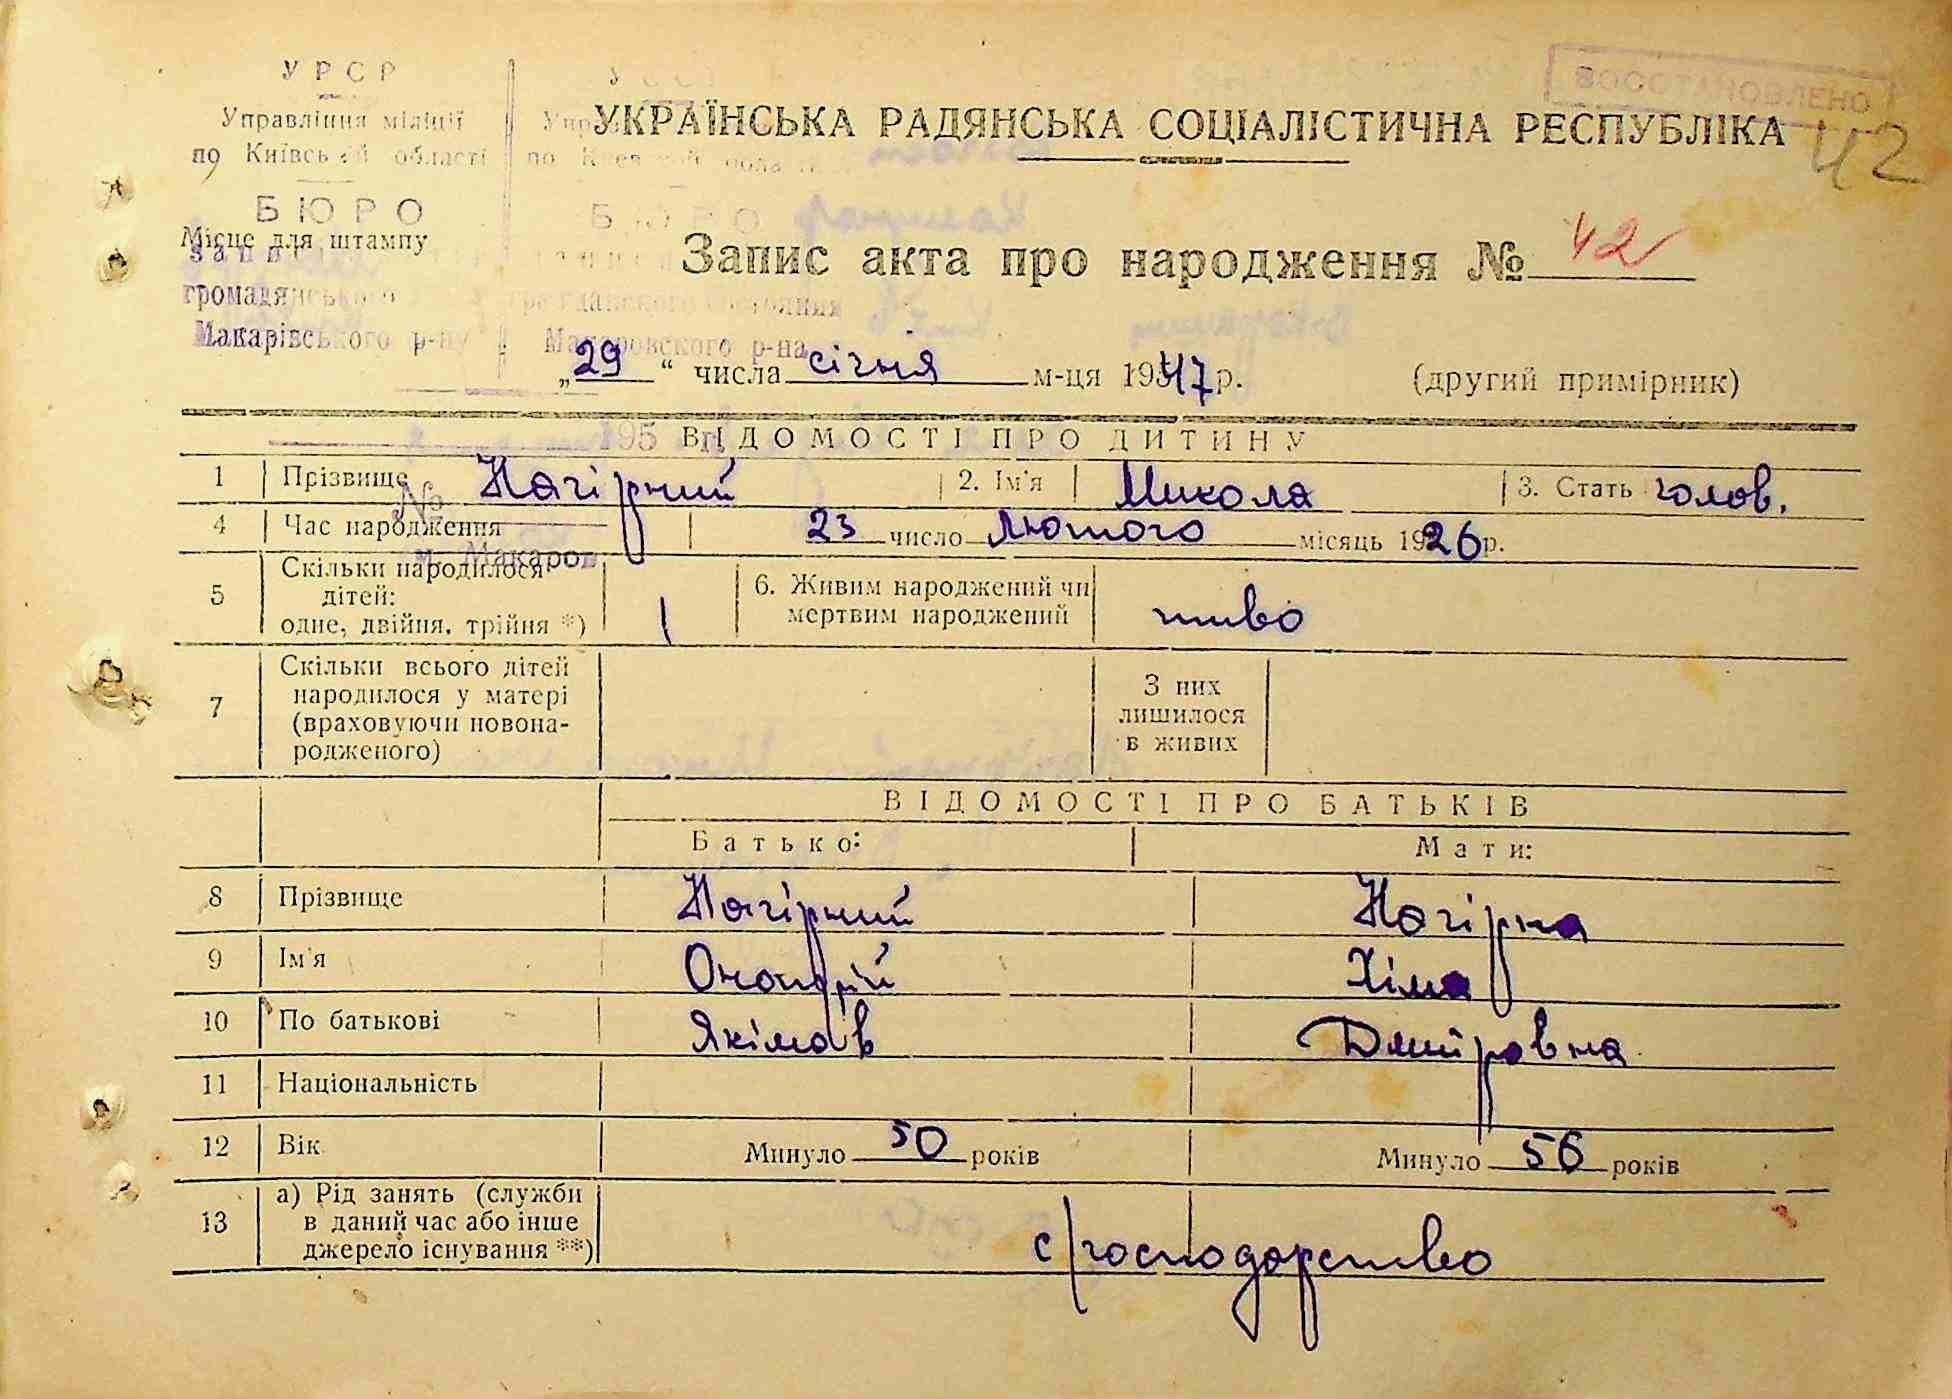 ВОССТАНОВЛЕНО
УРСР
Управління міліції
по Київській області
БЮРО
запис
громадянського
Макарівського р-ну
БЮРО
гражданского состояния
Макаровского р-на
195
№
м. Макаров
УКРАЇНСЬКА РАДЯНСЬКА СОЦІАЛІСТИЧНА РЕСПУБЛІКА
42
Місце для штампу
Запис акта про народження № 42
„29“ числа січня м-ця 1947 р. (другий примірник)
ВІДОМОСТІ ПРО ДИТИНУ
1 Прізвище Нагірний 2. Ім'я Микола 3. Стать чолов.
4 Час народження 23 число лютого місяць 1926 р.
5 Скільки народилося
дітей:
одне, двійня, трійня *) 1
6. Живим народжений чи
мертвим народжений живо
7 Скільки всього дітей
народилося у матері
(враховуючи новона-
родженого)
З них
лишилося
в живих
ВІДОМОСТІ ПРО БАТЬКІВ
Батько: Мати:
8 Прізвище Нагірний Нагірна
9 Ім'я Онопрій Хіма
10 По батькові Якімов Дмитровна
11 Національність
12 Вік Минуло 50 років Минуло 56 років
13 а) Рід занять (служби
в даний час або інше
джерело існування **)
с/господарство